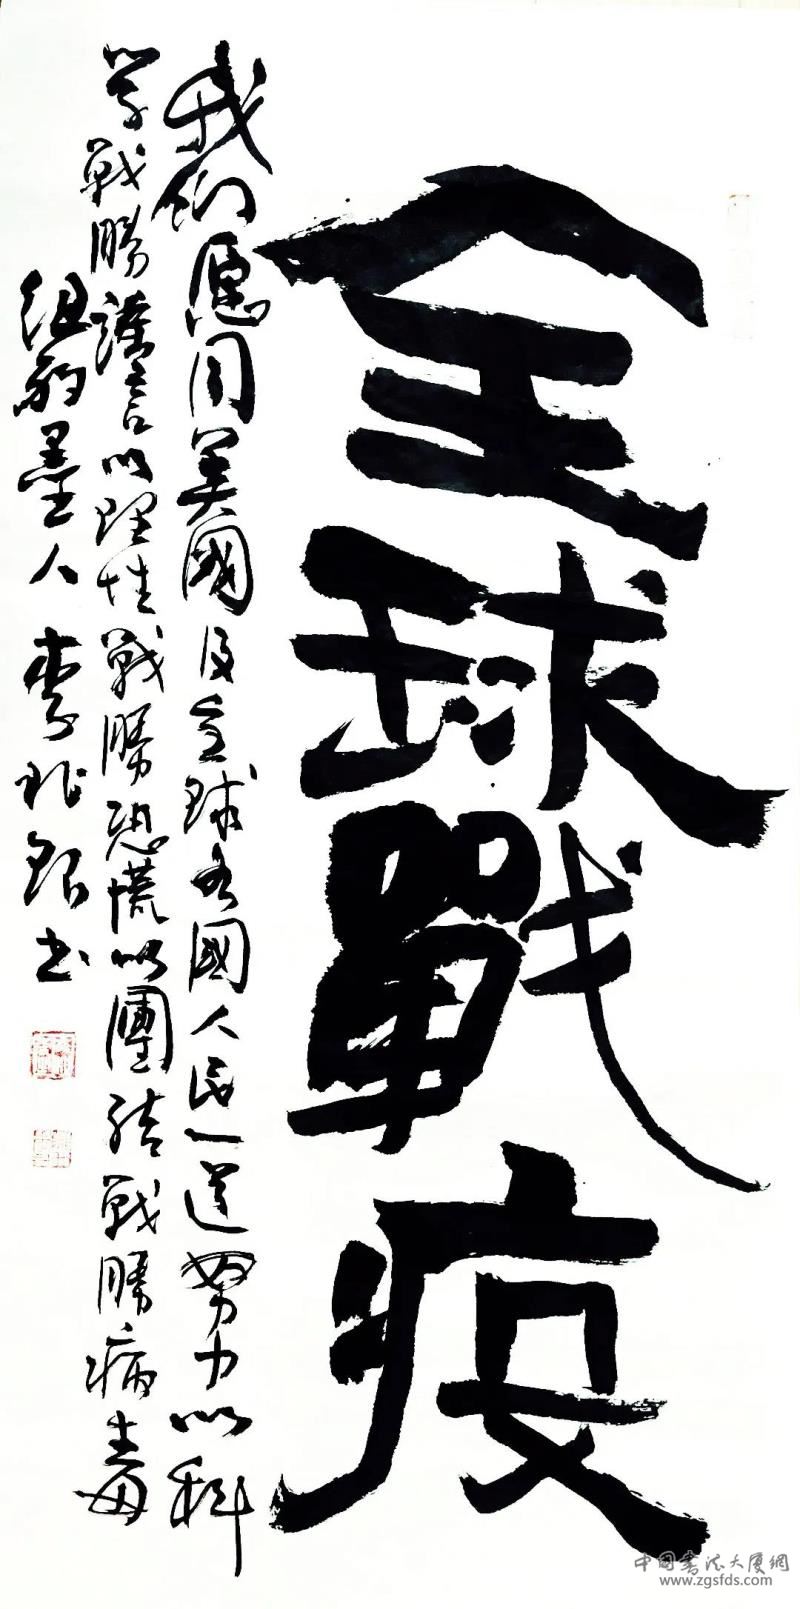 全球戰疫
我们愿同美國及全球各國人民一道努力以科
学戰勝謠言以理性戰勝恐慌以團结戰勝病毒
纽约墨人李兆银书
中国书法大厦網
www.zgsfds.com